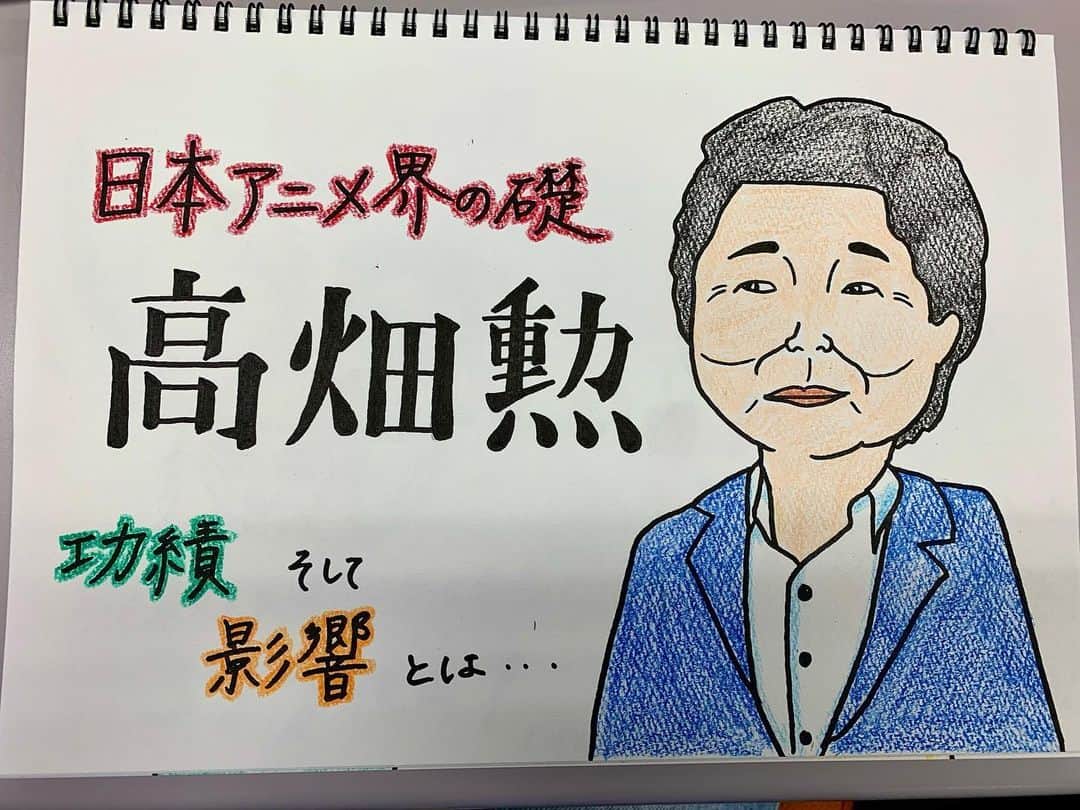 日本アニメ界の礎
高畑勲
功績 そして
影響 とは・・・